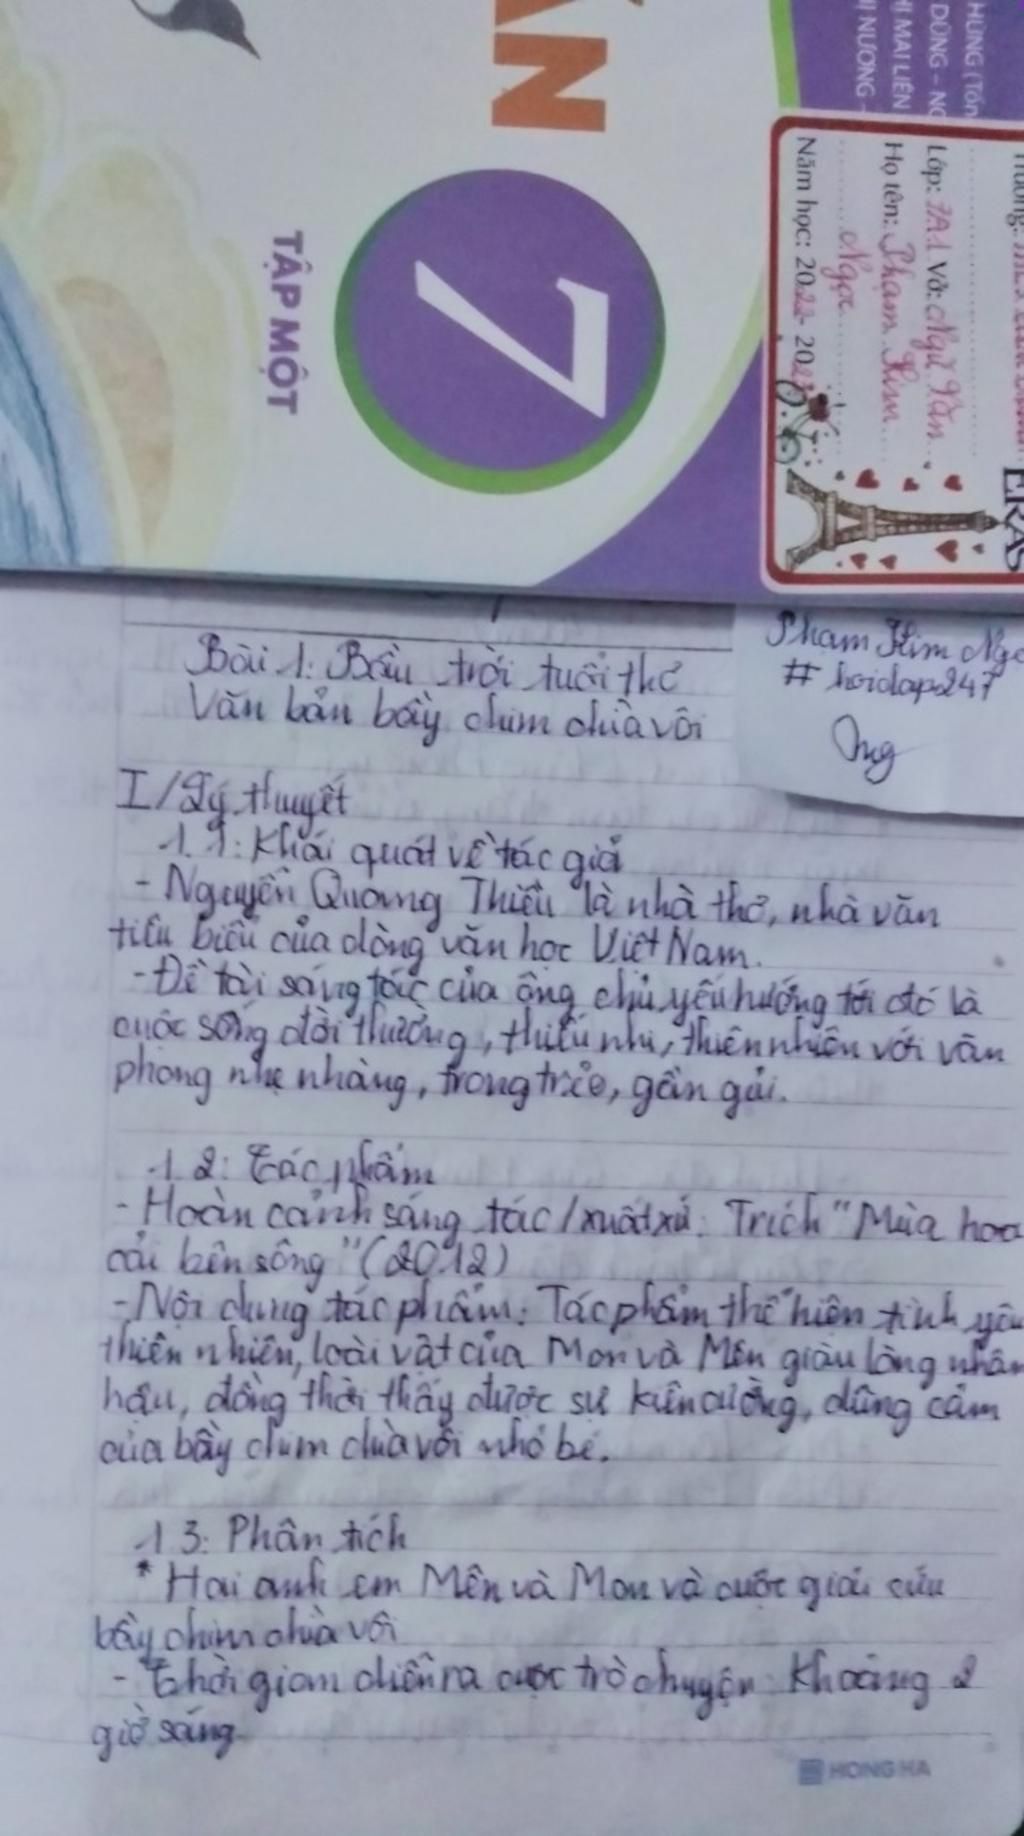 ĂN
7
TẬP MỘT
HÙNG (Tổn
DŨNG – NG
HỊ MAI LIÊN
HỊ NƯƠNG –
ERAS
Trường:
Lớp: 7A1 Vở: Ngữ Văn
Họ tên: Phạm Kim
Ngọc
Năm học: 2022- 20
Phạm Kim Ngọ
# hoidap247
Ong
Bài 1: Bầu trời tuổi thơ
Văn bản bầy chim chìa vôi
I/Lý thuyết
1.1: Khái quát về tác giả
- Nguyễn Quang Thiều là nhà thơ, nhà văn
tiêu biểu của dòng văn học Việt Nam.
- Đề tài sáng tác của ông chủ yếu hướng tới đó là
cuộc sống đời thường, thiếu nhi, thiên nhiên với văn
phong nhẹ nhàng, trong trẻo, gần gũi.
1.2: Tác phẩm
- Hoàn cảnh sáng tác/xuất xứ: Trích "Mùa hoa
cải bên sông" (2012)
- Nội dung tác phẩm: Tác phẩm thể hiện tình yêu
thiên nhiên, loài vật của Mon và Mên giàu lòng nhân
hậu, đồng thời thấy được sự kiên cường, dũng cảm
của bầy chim chìa vôi nhỏ bé.
1.3: Phân tích
* Hai anh em Mên và Mon và cuộc giải cứu
bầy chim chìa vôi
- Thời gian diễn ra cuộc trò chuyện: Khoảng 2
giờ sáng
HONG HA